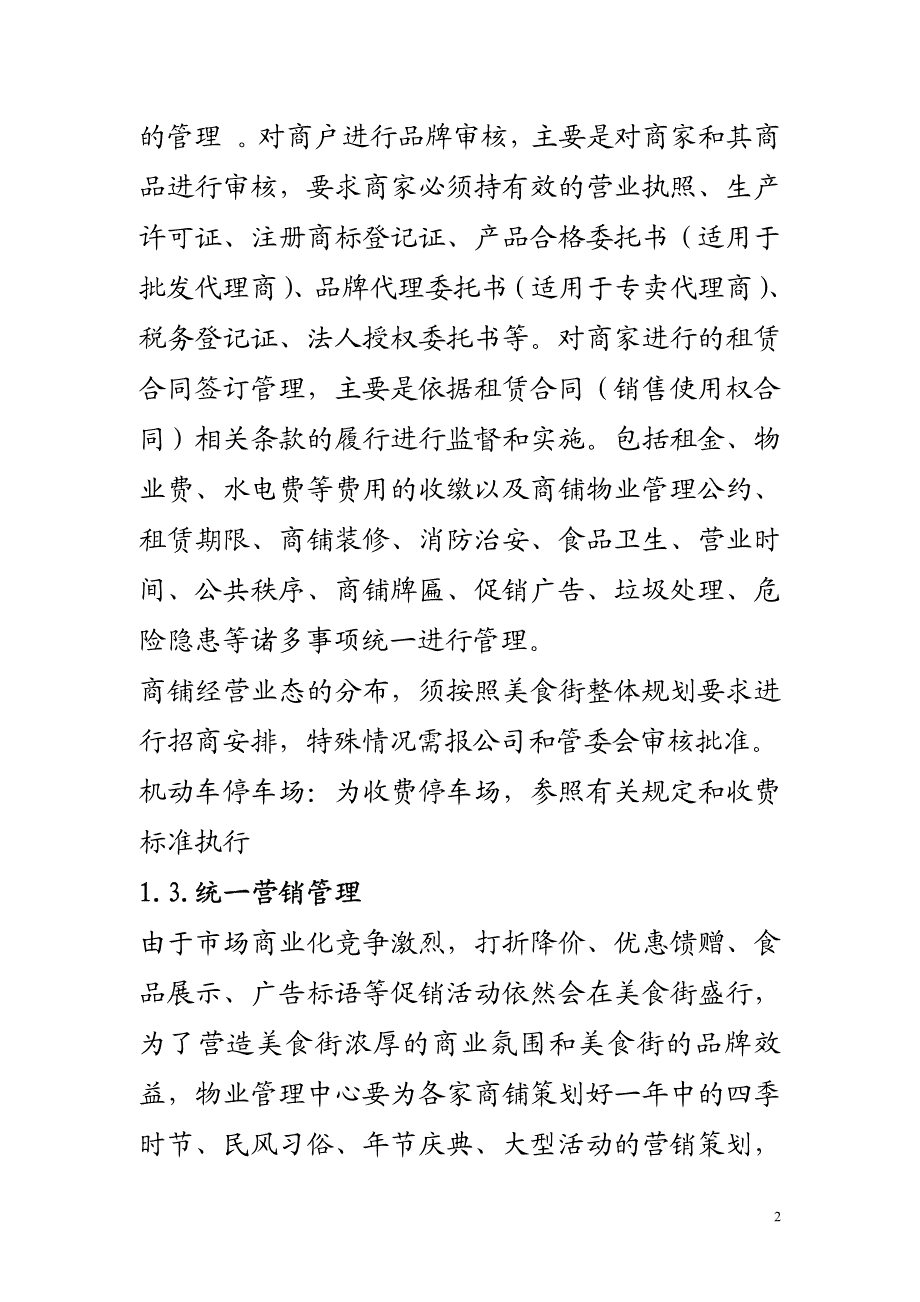 的管理 。对商户进行品牌审核，主要是对商家和其商
品进行审核，要求商家必须持有效的营业执照、生产
许可证、注册商标登记证、产品合格委托书（适用于
批发代理商）、品牌代理委托书（适用于专卖代理商）、
税务登记证、法人授权委托书等。对商家进行的租赁
合同签订管理，主要是依据租赁合同（销售使用权合
同）相关条款的履行进行监督和实施。包括租金、物
业费、水电费等费用的收缴以及商铺物业管理公约、
租赁期限、商铺装修、消防治安、食品卫生、营业时
间、公共秩序、商铺牌匾、促销广告、垃圾处理、危
险隐患等诸多事项统一进行管理。
商铺经营业态的分布，须按照美食街整体规划要求进
行招商安排，特殊情况需报公司和管委会审核批准。
机动车停车场：为收费停车场，参照有关规定和收费
标准执行
1.3.统一营销管理
由于市场商业化竞争激烈，打折降价、优惠馈赠、食
品展示、广告标语等促销活动依然会在美食街盛行，
为了营造美食街浓厚的商业氛围和美食街的品牌效
益，物业管理中心要为各家商铺策划好一年中的四季
时节、民风习俗、年节庆典、大型活动的营销策划，
2